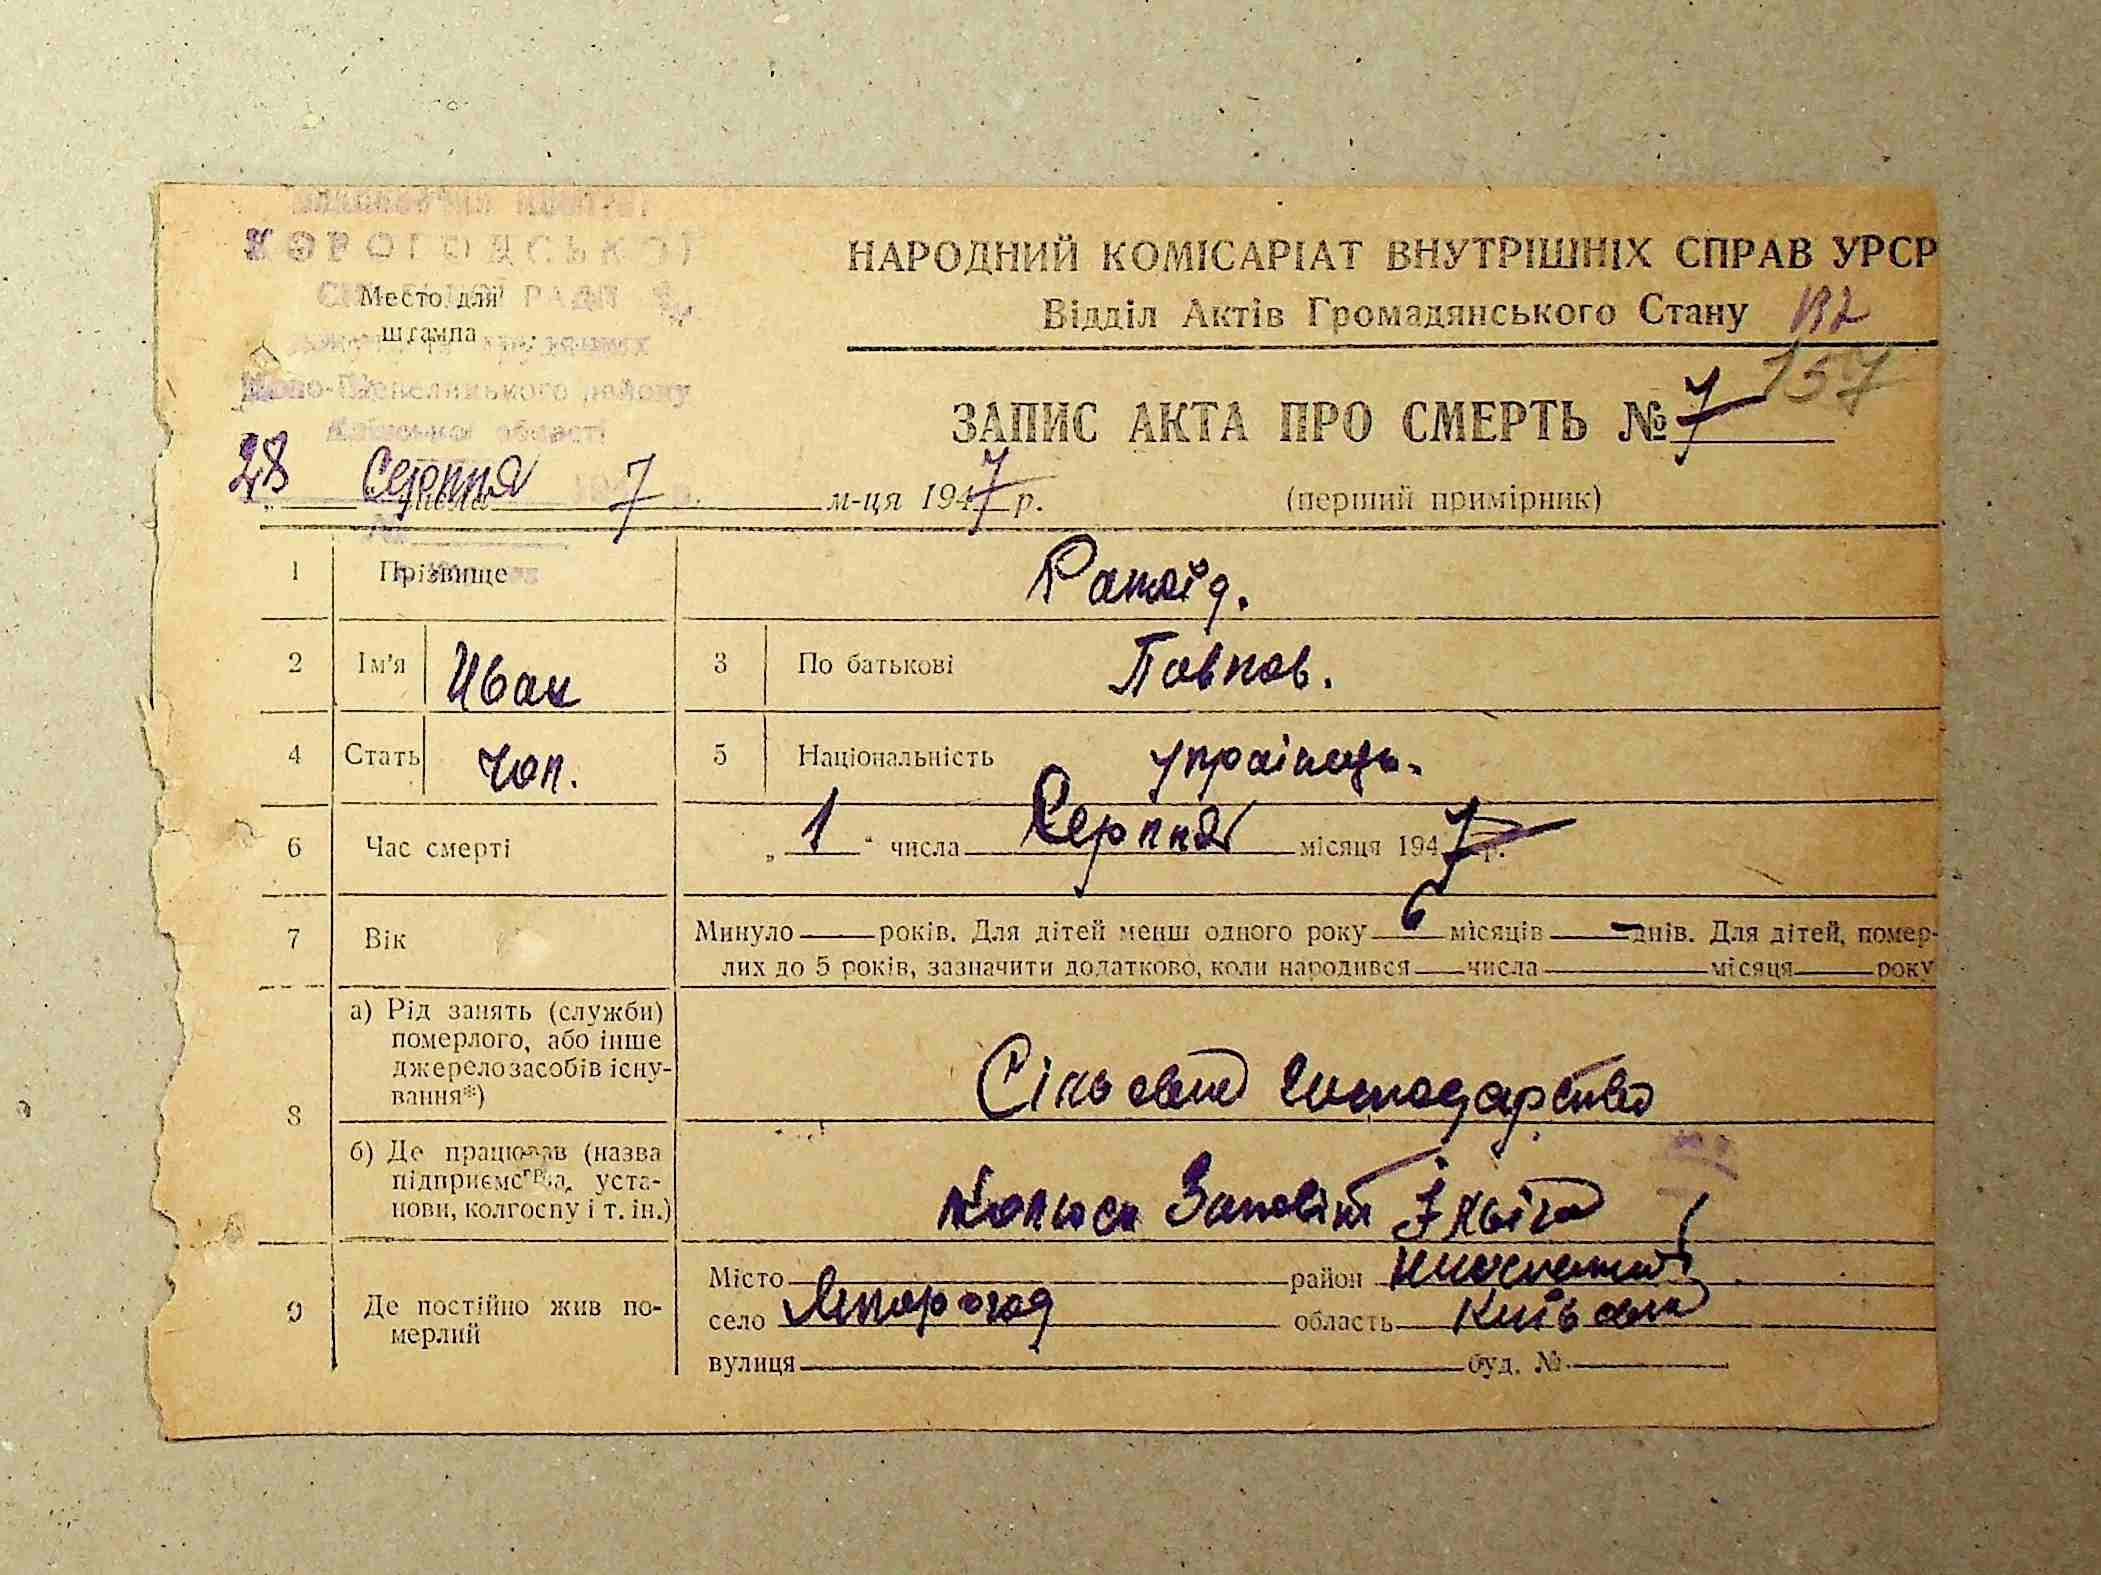 КОРОГОДСЬКОЇ
Место для
штампа
Ново-Шепелицького району
Київської області
НАРОДНИЙ КОМІСАРІАТ ВНУТРІШНІХ СПРАВ УРСР
Відділ Актів Громадянського Стану
157
ЗАПИС АКТА ПРО СМЕРТЬ № 7
28 Серпня 7 м-ця 1947 р. (перший примірник)
1 Прізвище
2 Ім'я Иван 3 По батькові Павлов.
4 Стать чол. 5 Національність українець.
6 Час смерті „ 1 “ числа Серпня місяця 1947 р.
7 Вік Минуло — років. Для дітей менш одного року 6 місяців — днів. Для дітей, помер-
лих до 5 років, зазначити додатково, коли народився — числа — місяця — року
8 а) Рід занять (служби)
померлого, або інше
джерело засобів існу-
вання*)
Сільське господарство
б) Де працював (назва
підприємства, уста-
нови, колгоспу і т. ін.)
Колгосп Заповіт Ілліча
9 Де постійно жив по-
мерлий
Місто район
село область Київська
вулиця буд. №